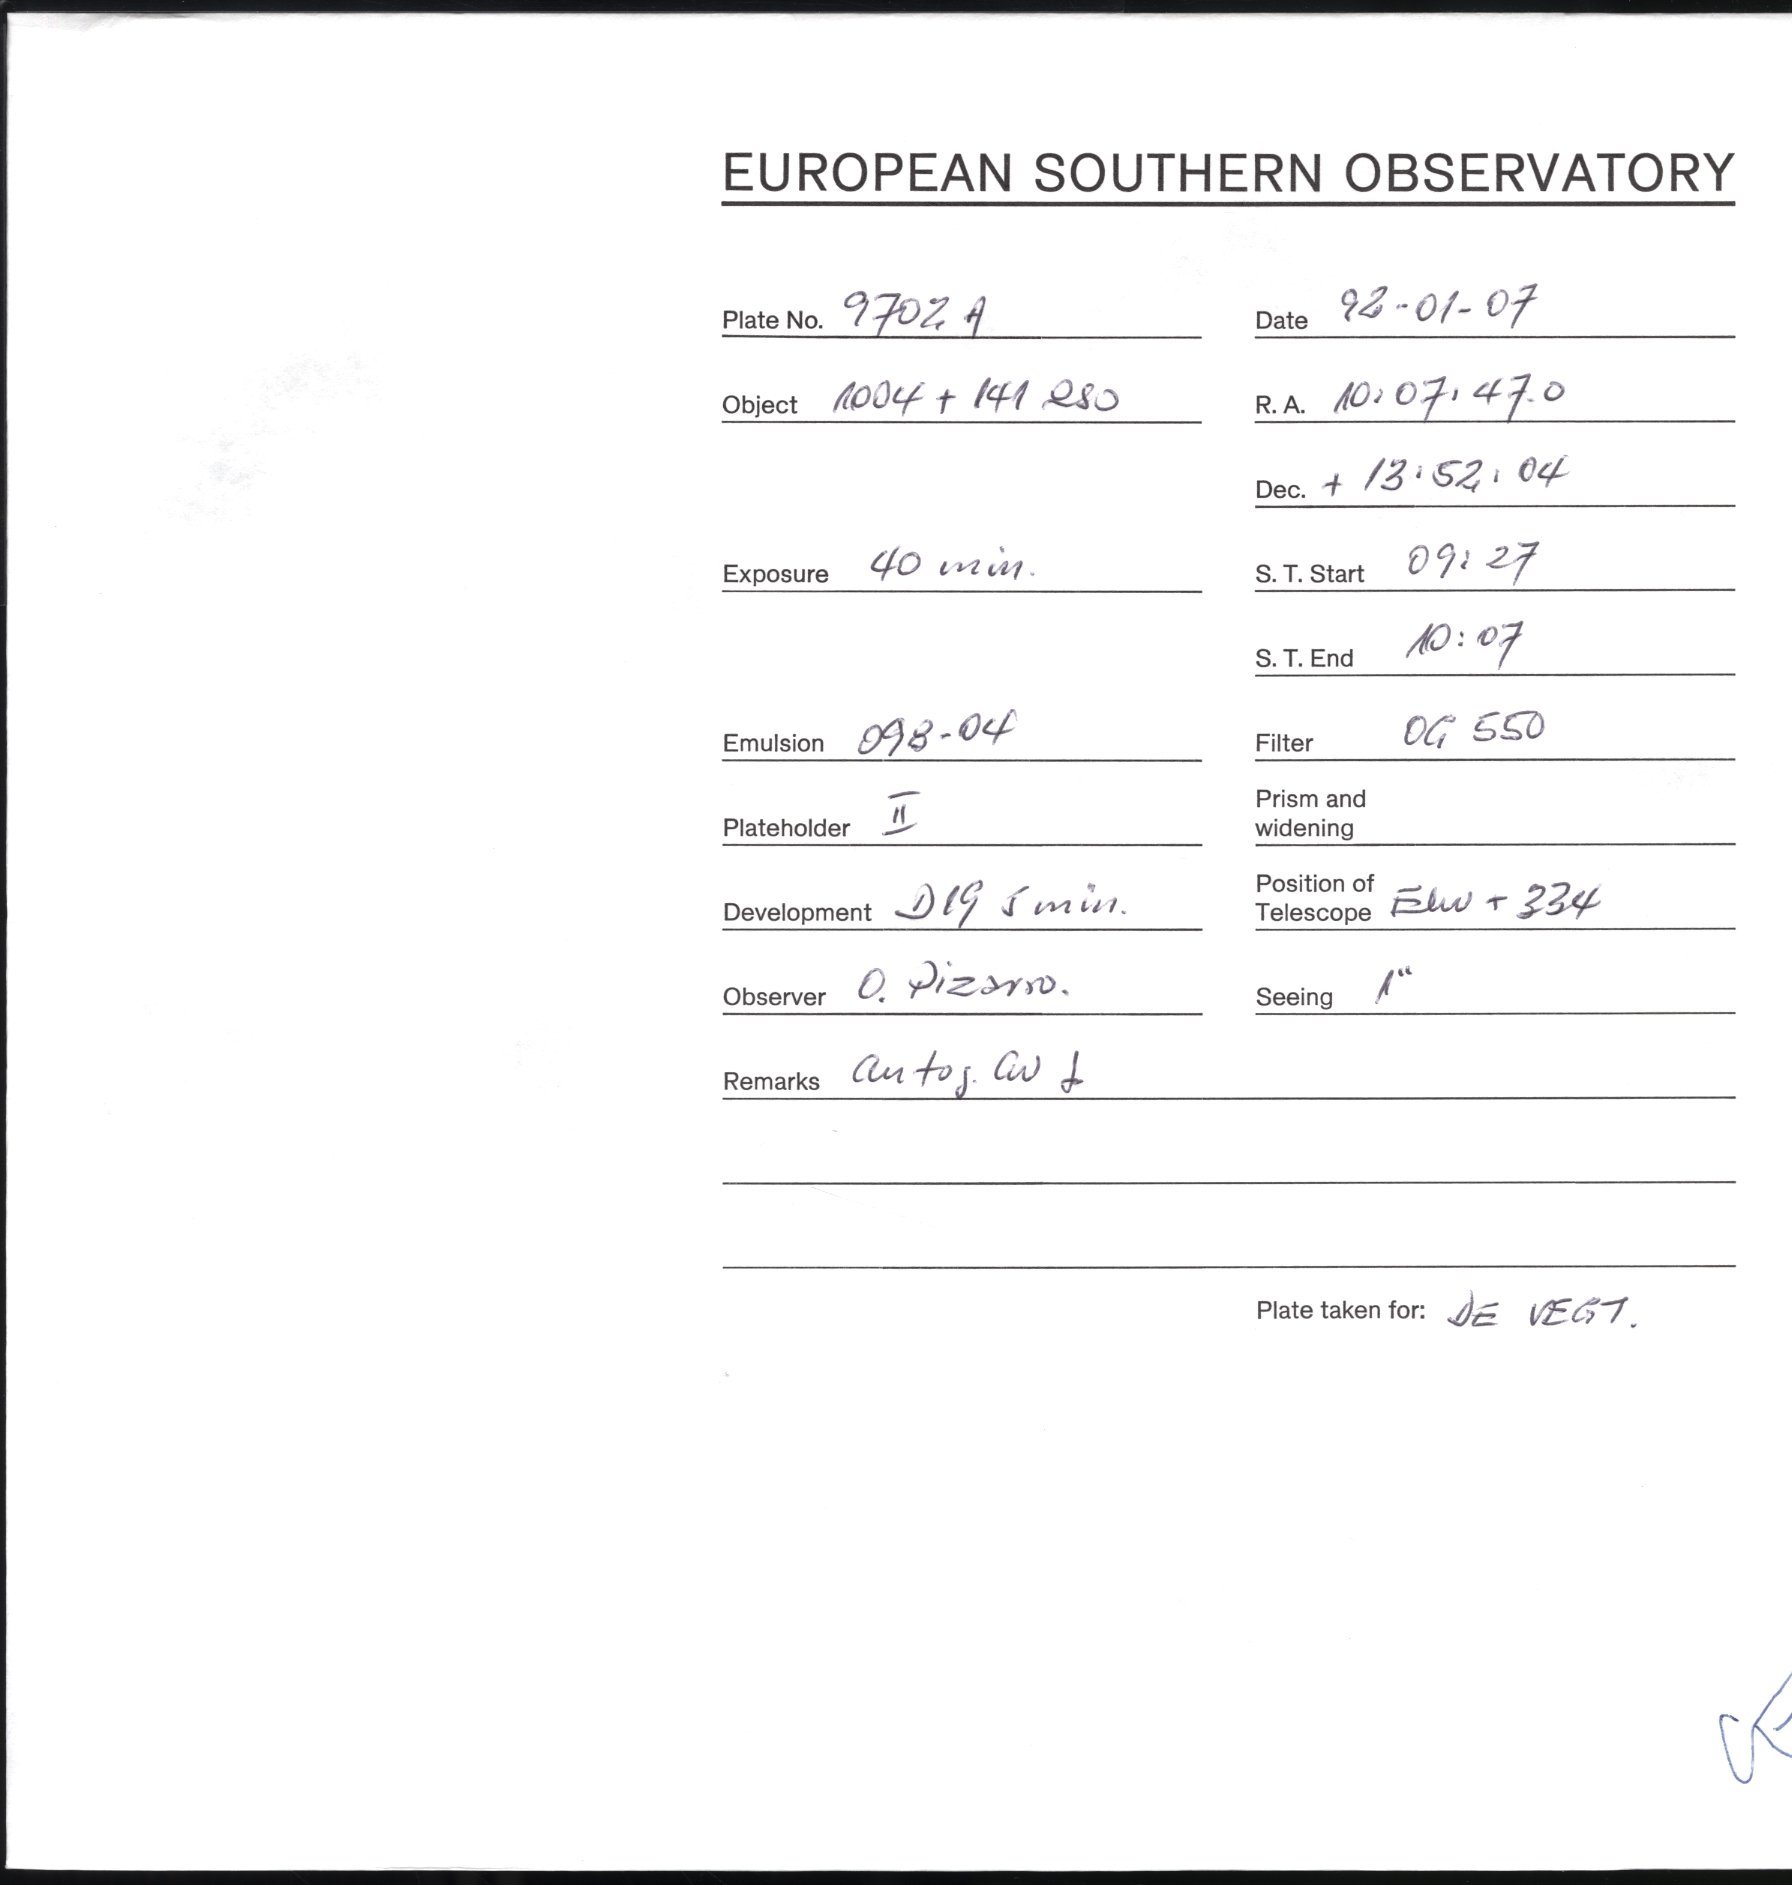 EUROPEAN SOUTHERN OBSERVATORY
Plate No. 9702 A Date 92-01-07
Object 1004 + 141 QSO R. A. 10:07:47.0
Dec. + 13:52:04
Exposure 40 min. S. T. Start 09:27
S. T. End 10:07
Emulsion 098-04 Filter OG 550
Plateholder II Prism and
widening
Development D19 5 min. Position of
Telescope + 334
Observer O. Pizarro. Seeing 1"
Remarks autog.
Plate taken for: DE VEGT.